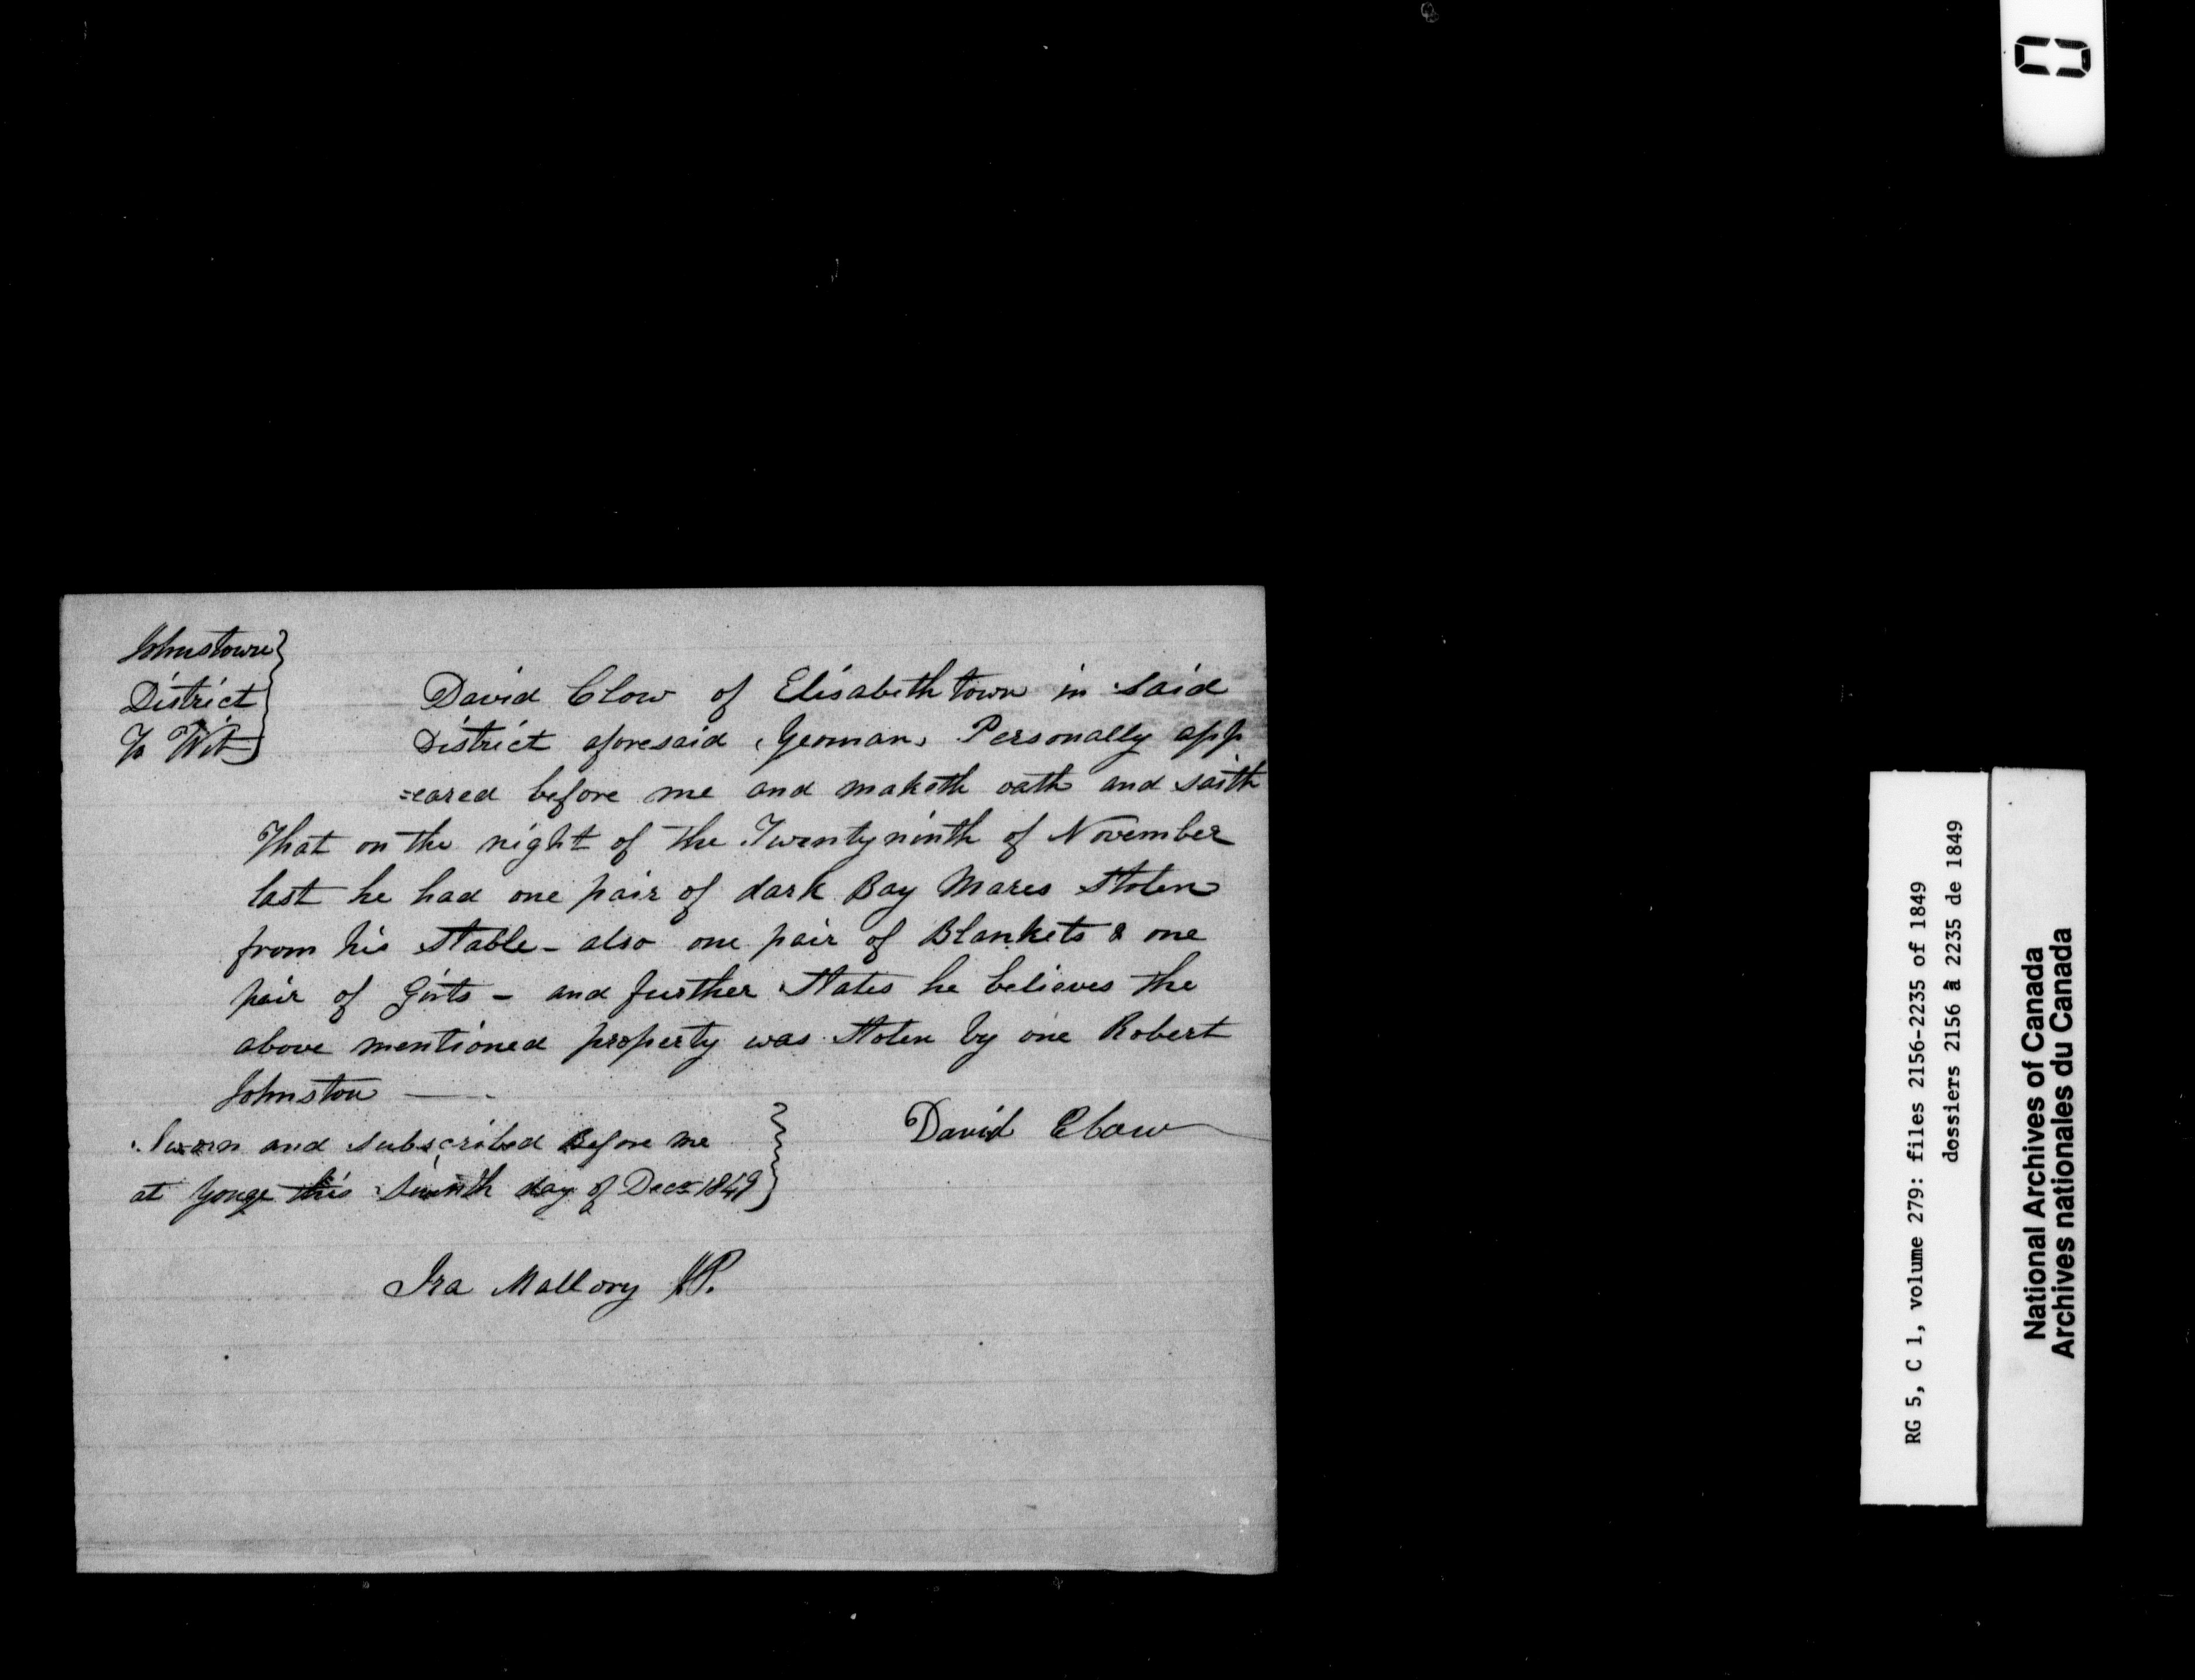 Johnstown
District
To Wit
David Clow of Elisabethtown in said
District aforesaid, Yeoman, Personally app
=eared before me and maketh oath and saith
That on the night of the Twenty ninth of November
last he had one pair of dark Bay Mares Stolen
from his Stable - also one pair of Blankets & one
pair of Girts - and further States he believes the
above mentioned property was Stolen by one Robert
Johnston
Sworn and Subscribed Before me
at Yonge this day of Decr 1849
David Clow
Ira Mallory JP.
RG 5, C 1, volume 279: files 2156-2235 of 1849
dossiers 2156 à 2235 de 1849
National Archives of Canada
Archives nationales du Canada